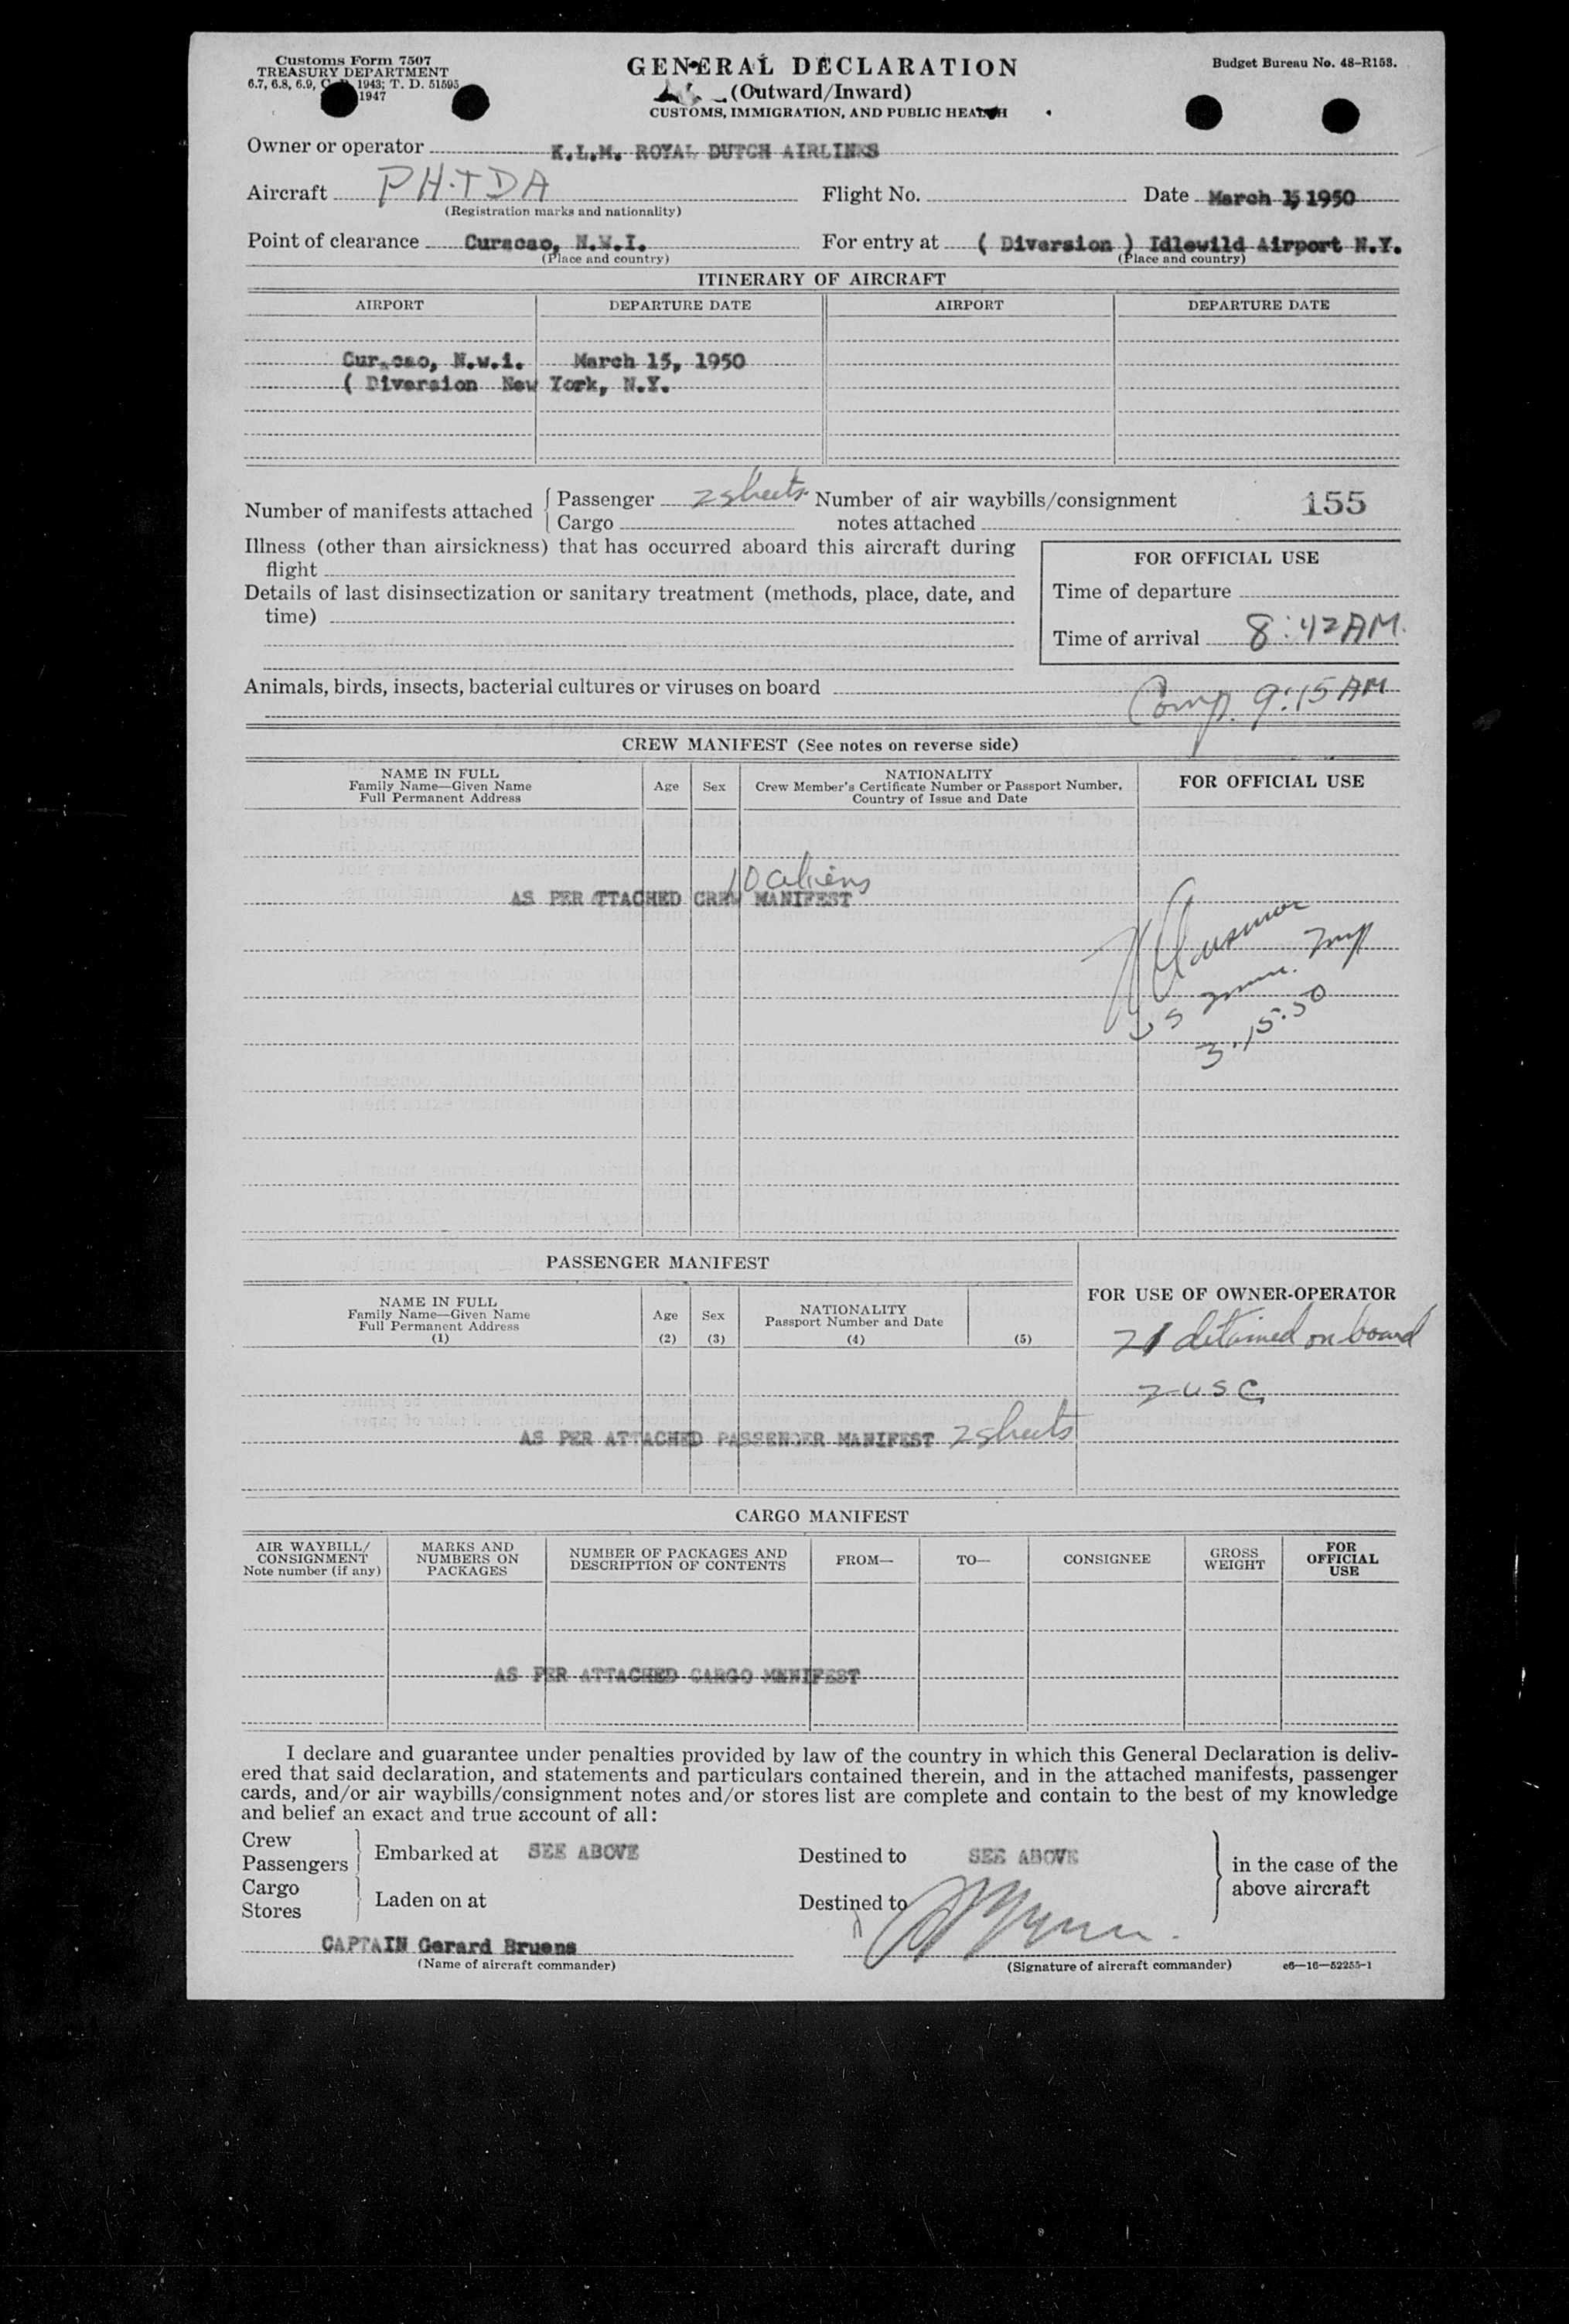 Customs Form 7507
TREASURY DEPARTMENT
6.7, 6.8, 6.9, C. 1943; T. D. 51595
1947
GENERAL DECLARATION
(Outward/Inward)
CUSTOMS, IMMIGRATION, AND PUBLIC HEALTH
Budget Bureau No. 48-R153.
Owner or operator K.L.M. ROYAL DUTCH AIRLINES
Aircraft PH-TDA Flight No. Date March 15, 1950
(Registration marks and nationality)
Point of clearance Curacao, N.W.I. For entry at ( Diversion ) Idlewild Airport N.Y.
(Place and country) (Place and country)
ITINERARY OF AIRCRAFT
AIRPORT DEPARTURE DATE AIRPORT DEPARTURE DATE
Curacao, N.w.i. March 15, 1950
( Diversion New York, N.Y.
Number of manifests attached Passenger 2 sheets Number of air waybills/consignment 155
Cargo notes attached
Illness (other than airsickness) that has occurred aboard this aircraft during
flight
FOR OFFICIAL USE
Details of last disinsectization or sanitary treatment (methods, place, date, and
time)
Time of departure
Time of arrival 8:42 AM.
Animals, birds, insects, bacterial cultures or viruses on board
Comp. 9:15 AM
CREW MANIFEST (See notes on reverse side)
NAME IN FULL
Family Name—Given Name
Full Permanent Address
Age Sex
NATIONALITY
Crew Member's Certificate Number or Passport Number,
Country of Issue and Date
FOR OFFICIAL USE
10 aliens
AS PER ATTACHED CREW MANIFEST
US Imm. Insp
3.15.50
PASSENGER MANIFEST
NAME IN FULL
Family Name—Given Name
Full Permanent Address
(1)
Age
(2)
Sex
(3)
NATIONALITY
Passport Number and Date
(4)
(5)
FOR USE OF OWNER-OPERATOR
21 detained on board
2 USC
AS PER ATTACHED PASSENGER MANIFEST 2 sheets
CARGO MANIFEST
AIR WAYBILL/
CONSIGNMENT
Note number (if any)
MARKS AND
NUMBERS ON
PACKAGES
NUMBER OF PACKAGES AND
DESCRIPTION OF CONTENTS
FROM—
TO—
CONSIGNEE
GROSS
WEIGHT
FOR
OFFICIAL
USE
AS PER ATTACHED CARGO MANIFEST
I declare and guarantee under penalties provided by law of the country in which this General Declaration is deliv-
ered that said declaration, and statements and particulars contained therein, and in the attached manifests, passenger
cards, and/or air waybills/consignment notes and/or stores list are complete and contain to the best of my knowledge
and belief an exact and true account of all:
Crew
Passengers
Embarked at SEE ABOVE Destined to SEE ABOVE
Cargo
Stores
Laden on at Destined to
in the case of the
above aircraft
CAPTAIN Gerard Bruens
(Name of aircraft commander) (Signature of aircraft commander) c6—16—52255-1